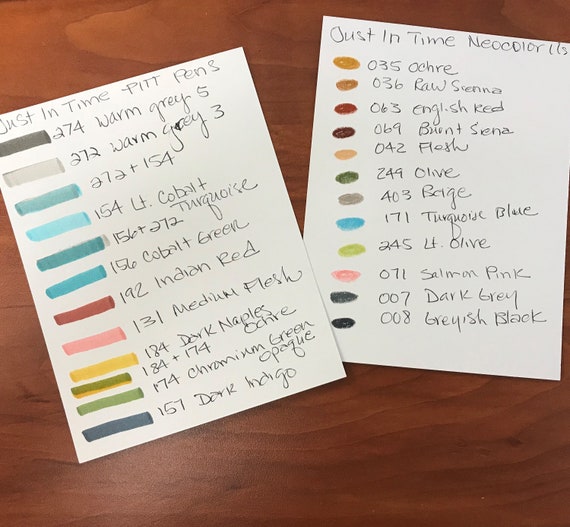 Just In Time PITT Pens
274 Warm grey 5
272 warm grey 3
272 + 154
154 Lt. Cobalt
Turquoise
156 + 272
156 Cobalt Green
192 Indian Red
131 Medium Flesh
184 Dark Naples
Ochre
184 + 174
174 Chromium Green
Opaque
157 Dark Indigo
Just In Time Neocolor IIs
035 Ochre
036 Raw Sienna
063 English Red
069 Burnt Siena
042 Flesh
249 Olive
403 Beige
171 Turquoise Blue
245 Lt. Olive
071 Salmon Pink
007 Dark Grey
008 Greyish Black